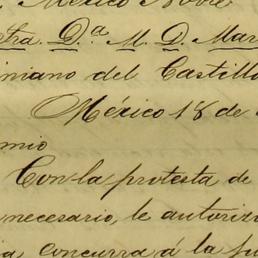 México Nobre
Sra. D.ª M. D. Mar
iniano del Castillo
México 18 de
mio
Con la protesta de
necesario, le autoriz
concurra á la